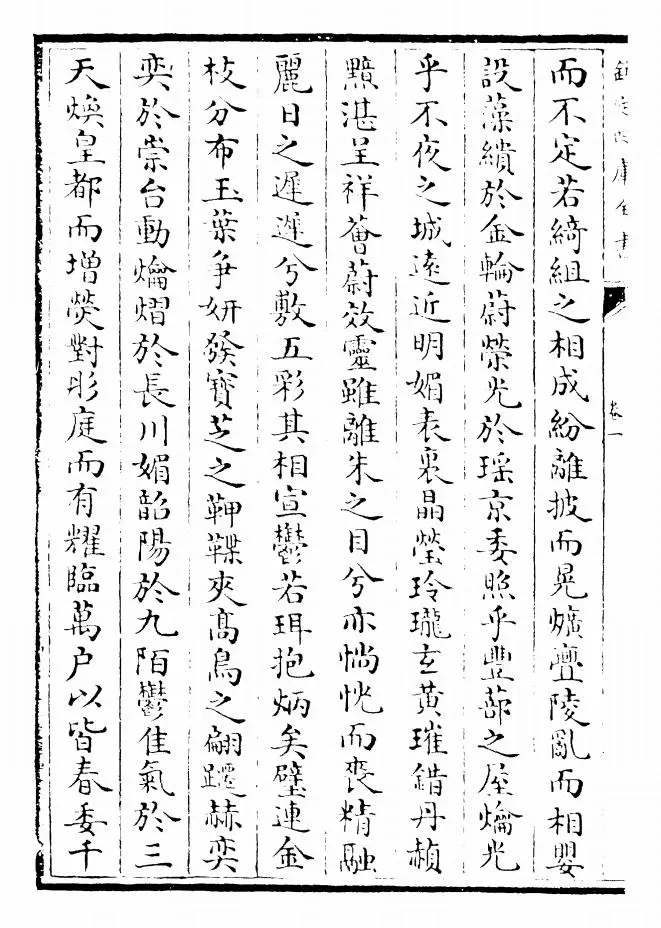 欽定四庫全書
卷一
而不定若綺組之相成紛離披而晃爌亹陵亂而相嬰
設藻繢於金輪蔚榮光於瑶京委照乎豐蔀之屋爚光
乎不夜之城遠近明媚表裏晶瑩玲瓏玄黄璀錯丹赬
黯湛呈祥薈蔚效靈雖離朱之目兮亦惝恍而喪精融
麗日之遲遲兮敷五彩其相宣鬱若珥抱炳矣璧連金
枝分布玉葉争妍發寳芝之鞞鞢夾髙鳥之翩躚赫奕
奕於崇台動爚熠於長川媚韶陽於九陌鬱佳氣於三
天煥皇都而増熒對彤庭而有耀臨萬户以皆春委千